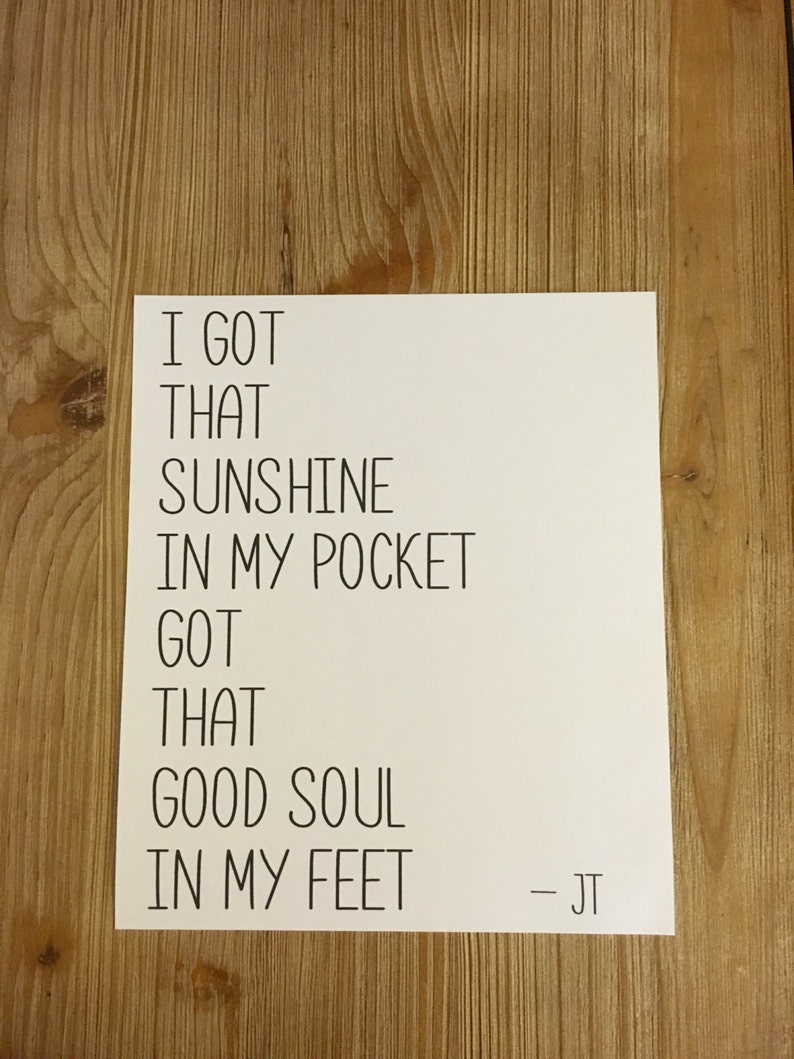 I GOT
THAT
SUNSHINE
IN MY POCKET
GOT
THAT
GOOD SOUL
IN MY FEET – JT